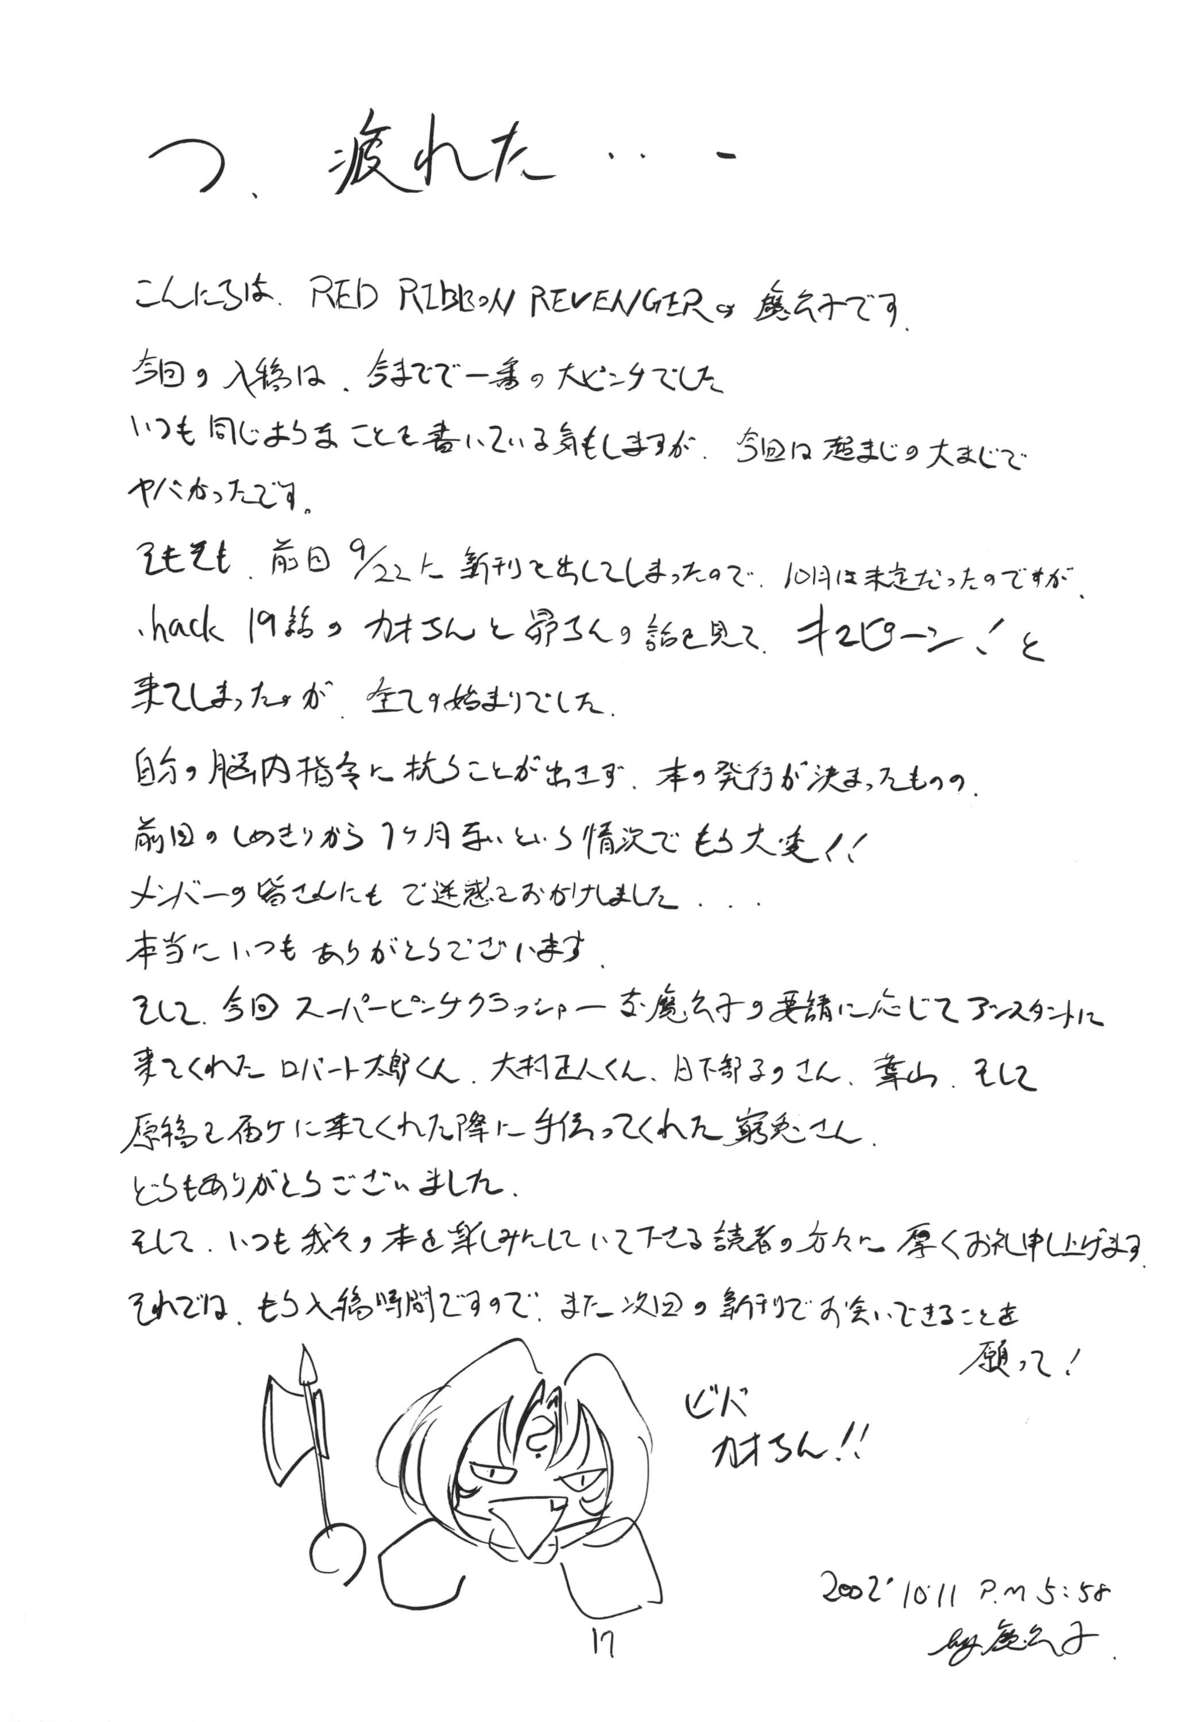 つ、疲れた・・・ー
こんにちは、RED RIBBON REVENGERの魔公子です。
今回の入稿は、今までで一番の大ピンチでした
いつも同じようなことを書いている気もしますが、今回は超まじの大まじで
ヤバかったです。
そもそも、前回9/22に新刊を出してしまったので、10月は未定だったのですが、
.hack 19話のカオちんと昴ちんの話を見て、キュピーン!と
来てしまったのが、全ての始まりでした。
自分の脳内指令に抗うことが出きず、本の発行が決まったものの、
前回のしめきりから1ヶ月無いという情況でもう大変!!
メンバーの皆さんにもご迷惑をおかけしました...
本当にいつもありがとうございます。
そして、今回スーパーピンチクラッシャーな魔公子の要請に応じてアシスタントに
来てくれたロバート太郎くん、大村正人くん、日下部子のさん、葉山、そして
原稿を届けに来てくれた際に手伝ってくれた窮兎さん、
どうもありがとうございました。
そして、いつも我々の本を楽しみにしていて下さる読者の方々に厚くお礼申し上げます。
それでは、もう入稿時間ですので、また次回の新刊でお会いできることを
願って!
ビバ
カオちん!!
2002' 10.11 P.M 5:58
by 魔公子.
17